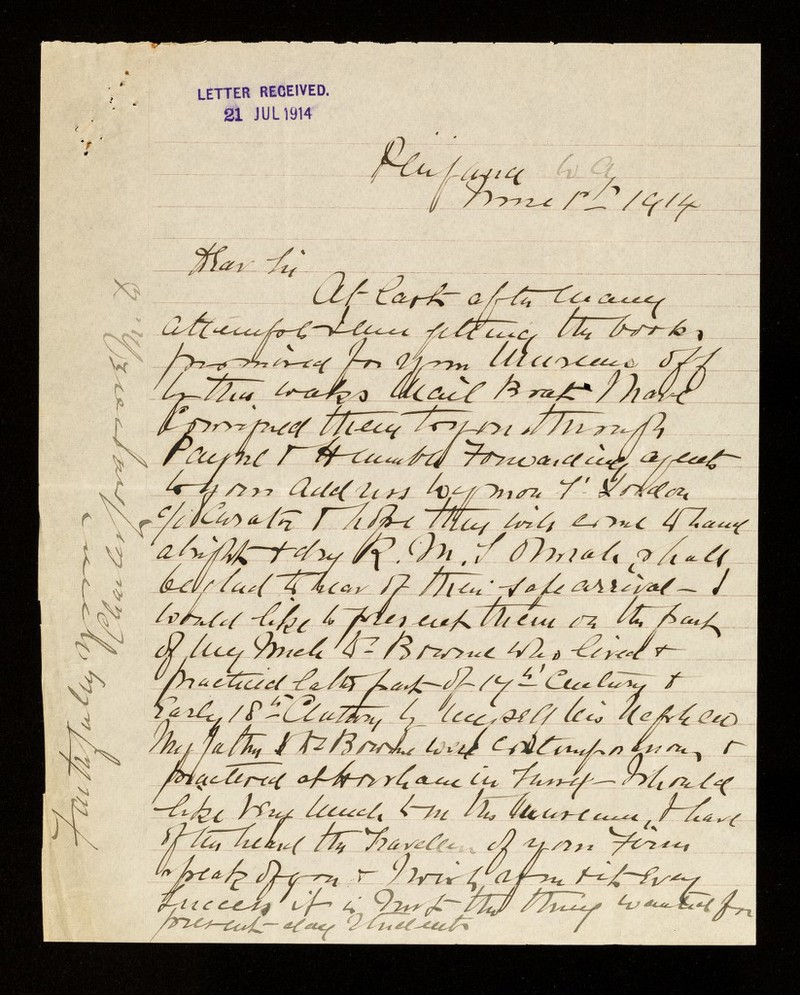 LETTER RECEIVED.
21 JUL 1914
W A
June 1st 1914
Dear Sir
At last after many
attempts getting the books
promised for your Museum off
by this weeks Mail Boat I have
Consigned them to you through
Payne & Forwarding agents
to your address Wigmore St London
c/o Curator & hope they will come to hand
alright & dry R.M.S Omrah, shall
be glad to hear of their safe arrival – I
would like to present them on the part
of my Uncle Dr Bourne who lived &
practiced latter part of 17th Century &
Early 18th Century by myself his Nephew
My father & Dr Bourne were &
practiced at Horsham in – I should
like Very much to see the Museum, I have
often heard the Travellers of your Firm
speak of you & I wish you & it Every
Success it is Just the thing wanted for
present day Students
Faithfully Yours
Charles